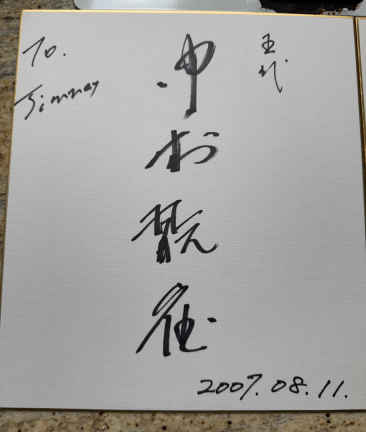 To.
Jimmey
五代
中村
2007.08.11.